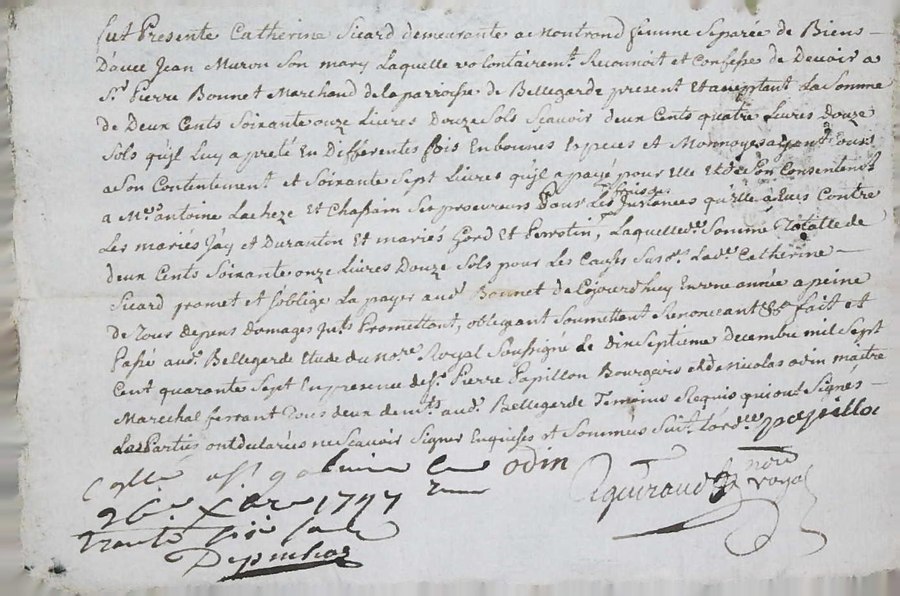 fut Presente Catherine Sicard demeurante a Montrond femme Separée de Biens
D'avec Jean Muron Son mary Laquelle volontairemt. Reconnoit et Confesse de Devoir a
Sr. Pierre Bonnet Marchand de la parroisse de Bellegarde present Et acceptant La Somme
de Deux Cents Soixante onze Livres Douze Sols Scavoir deux Cents quatre Livres Douze
Sols qu'jl Luy a preté En Differentes fois En bonnes Especes et Monnoyes ayant Cours
a Son Contentement et Soixante Sept Livres qu'jl a payé pour Elle Et de Son Consentemt.
a Mes. antoine Lacheze Et Chassain Ses procureurs Pour Les frais des Instances qu'elle a Eues Contre
Les mariés Jay et Duranton Et mariés Gord Et Perrotin, Laquelle Somme Totalle de
deux Cents Soixante onze Livres Douze Sols pour Les Causes Susd. Lade. Catherine
Sicard promet et S'oblige La payer aud. Bonnet de Cejourd'huy En une année a peine
de Tous Depens Domages Promettant, obligeant Soumettant Renoncant & fait et
Passé aud. Bellegarde Etude du Nore. Royal Soussigné Le Dix Septieme Decembre mil Sept
Cent quarante Sept En presence de Sr. Pierre Papillon Bourgeois et de Nicolas odin maitre
Marechal ferrant Tous deux demts. aud. Bellegarde Temoins Requis qui ont Signés
Les Parties ont declarées ne Scavoir Signer Enquises et Sommées Suivt. L'ordce. papillon
odin
26e. Xbre 1747
nore royal